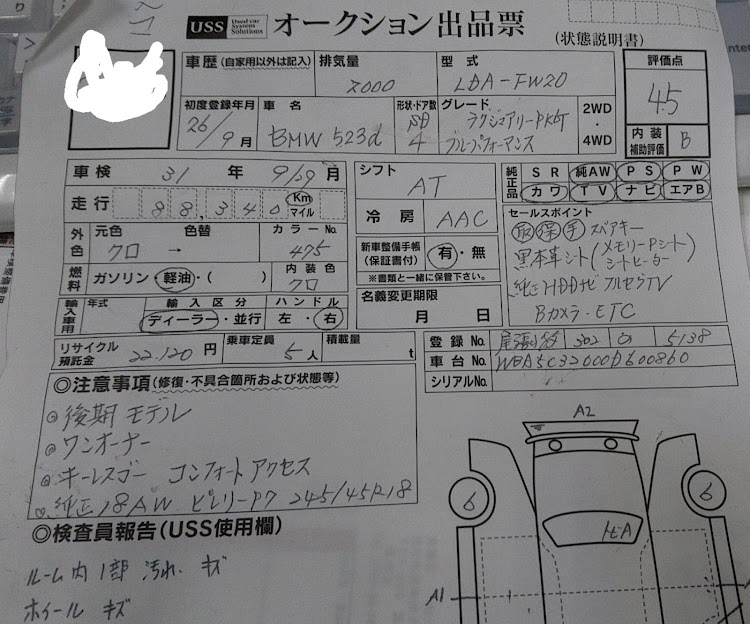 USS Used car System Solutions オークション出品票
(状態説明書)
車歴 (自家用以外は記入) 排気量 型式 評価点
2000 LDA-FW20 4.5
初度登録年月 車名 形状・ドア数 グレード 2WD・4WD
26/9月 BMW 523d 4 ラグジュアリーPKGT
ブルーパフォーマンス
内装補助評価 B
車検 31年 9/29月 シフト AT
純正品 SR 純AW PS PW
カワ TV ナビ エアB
走行 88,340 Km マイル
冷房 AAC
セールスポイント
取 保 手 スペアキー
黒本革シート(メモリーPシート シートヒーター)
純正HDDナビ フルセグTV
Bカメラ・ETC
外色 元色 色替 カラーNo.
クロ → 475
新車整備手帳 (保証書付) 有・無
※書類と一緒に保管下さい。
燃料 ガソリン・軽油・( ) 内装色 クロ
名義変更期限
月 日
輸入車用 年式 輸入区分 ハンドル
ディーラー・並行 左・右
リサイクル預託金 22.120円 乗車定員 5人 積載量 t
登録No. 尾張小牧 302 の 5138
車台No. WBA5C32000D600860
シリアルNo.
◎注意事項(修復・不具合箇所および状態等)
◎後期モデル
◎ワンオーナー
◎キーレスゴー コンフォートアクセス
◎純正18AW ピレリーP7 245/45R18
◎検査員報告(USS使用欄)
ルーム内1部 汚れ、キズ
ホイール キズ
A2
6 6
トビA
A1